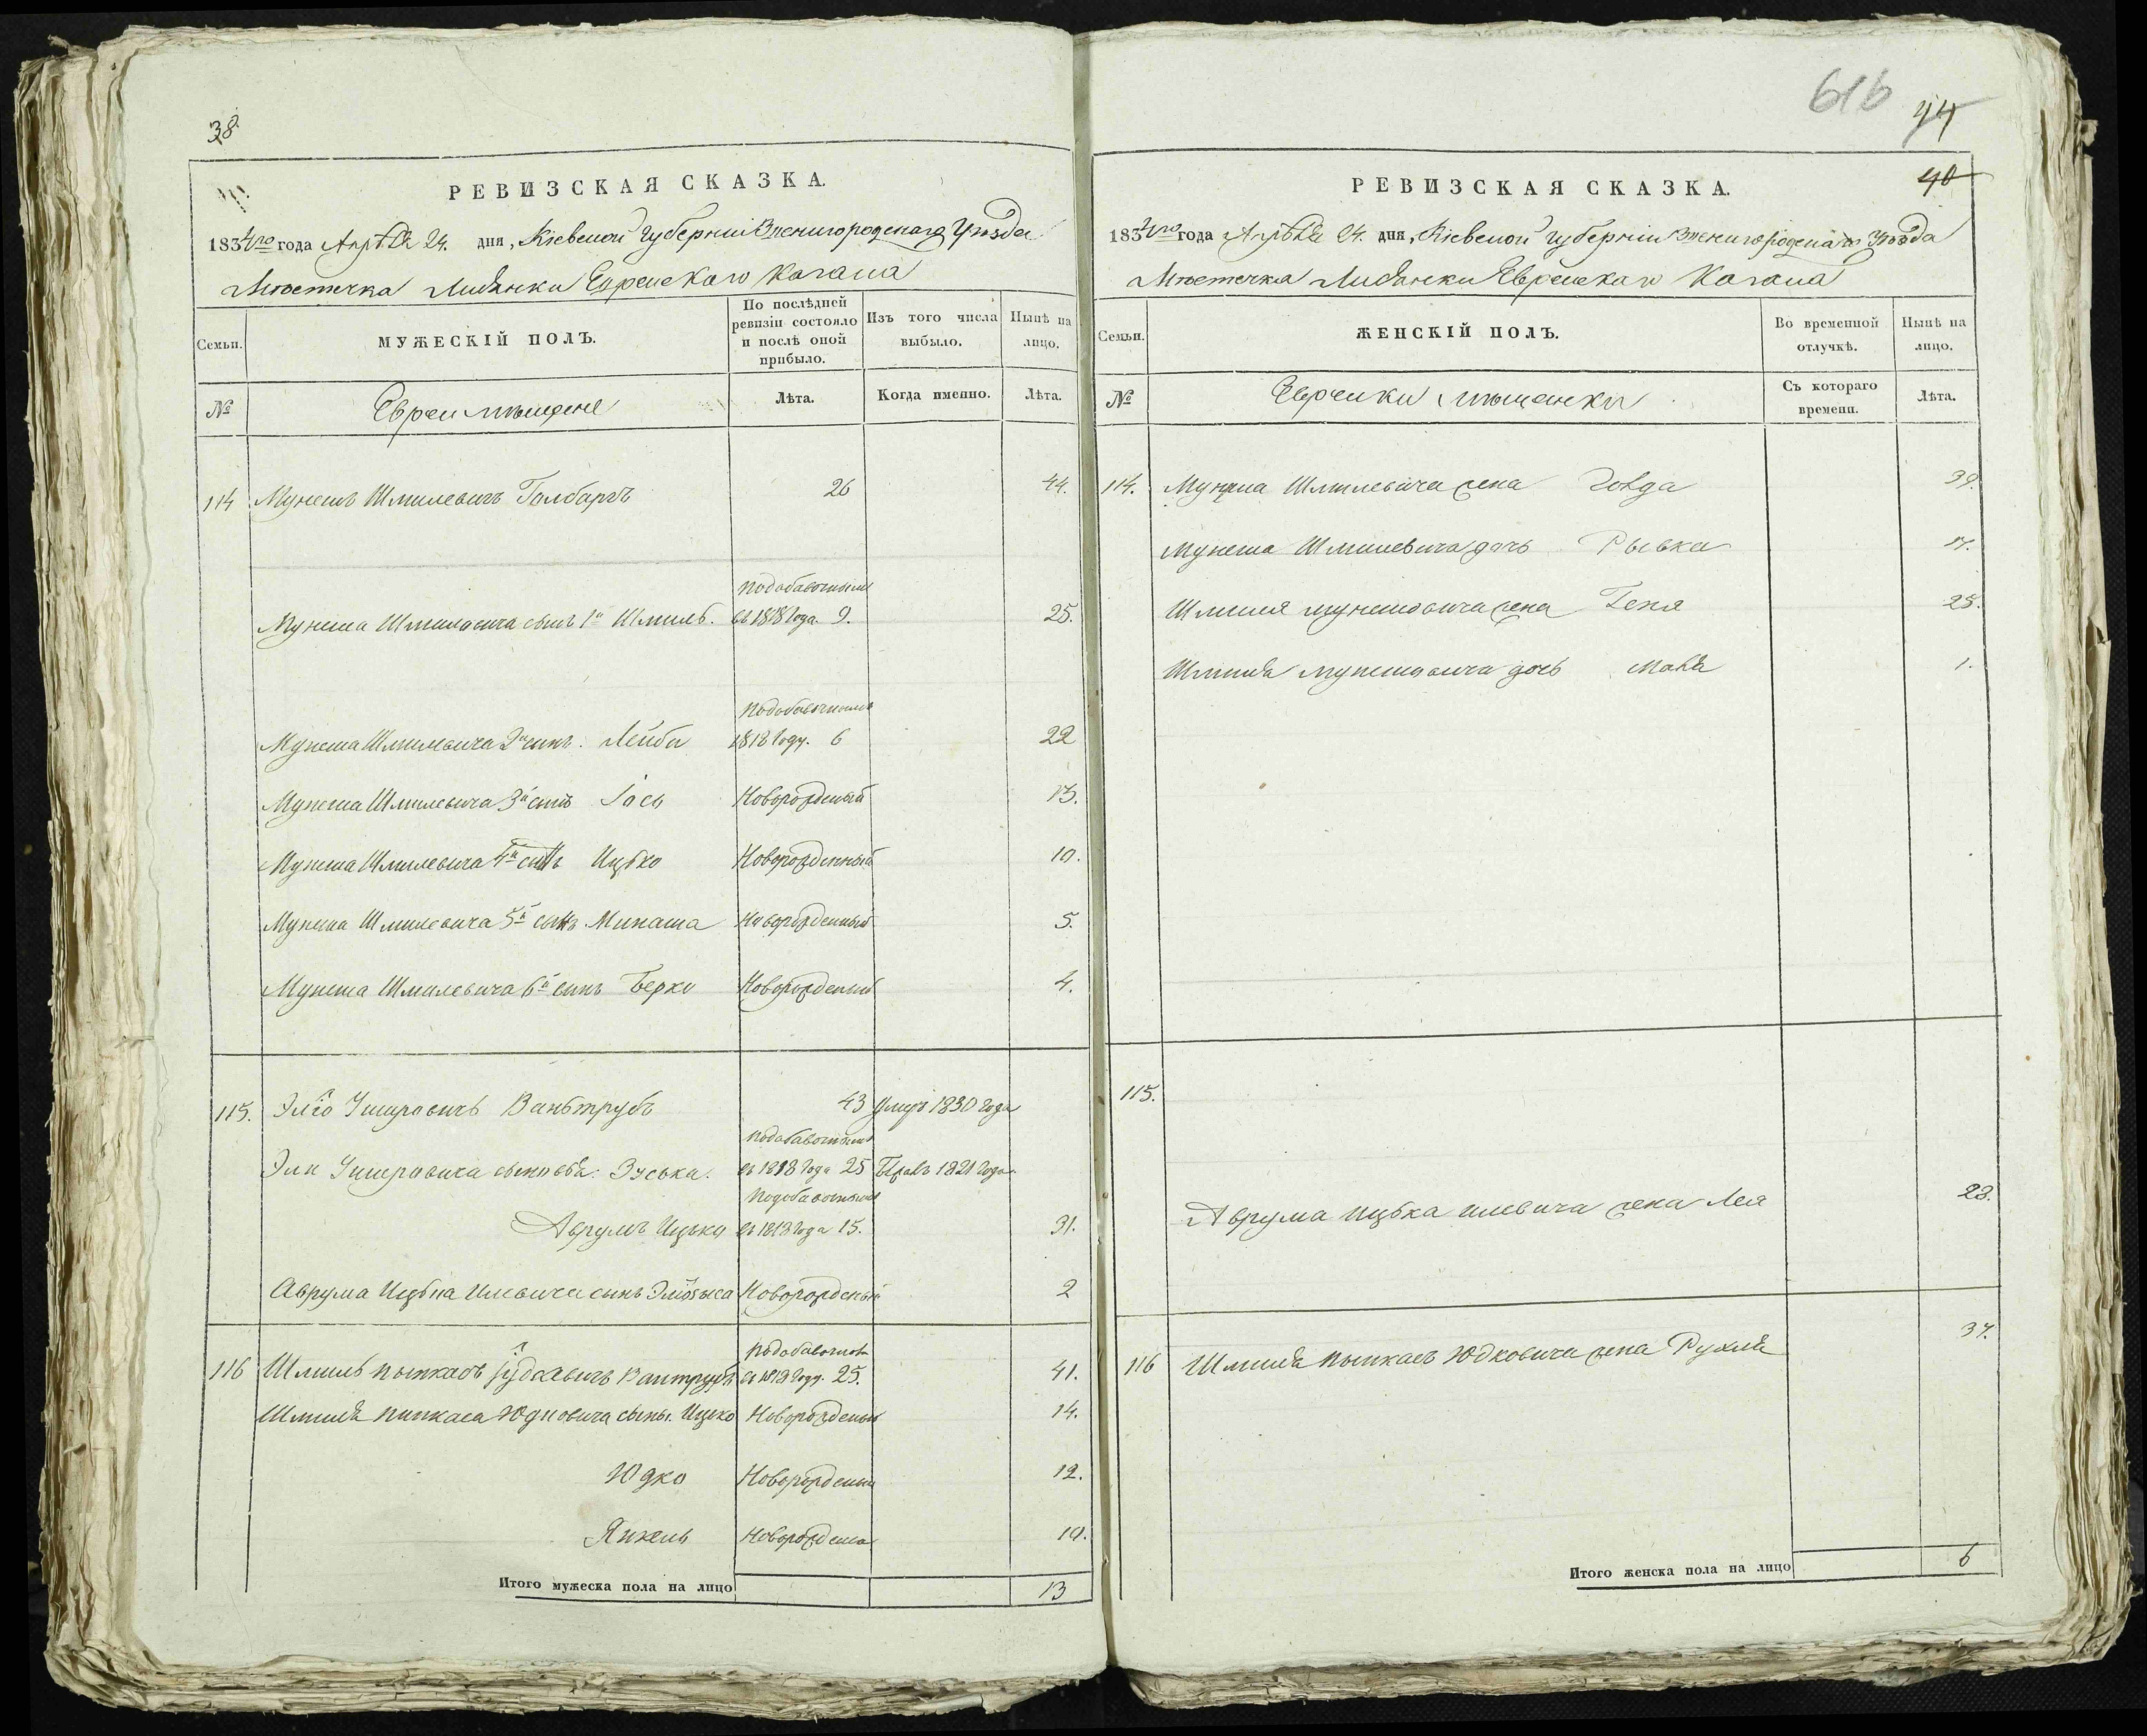 38
РЕВИЗСКАЯ СКАЗКА.
1834го года Апрѣля 24. дня, Кіевской Губерніи Звенигородскаго Уѣзда
Мѣстечка Лисянки Еврейскаго Кагала
Семьи.
МУЖЕСКІЙ ПОЛЪ.
По послѣдней ревизіи состояло и послѣ оной прибыло.
Изъ того числа выбыло.
Нынѣ на лицо.
№
Евреи мѣщане
Лѣта.
Когда именно.
Лѣта.
114 Мунешъ Шмилевичъ Голбартъ 26 44.
Подобавочнымъ
Мунеша Шмилевича сынъ 1й Шмиль. въ 1818 года. 9. 25.
Подобавочнымъ
Мунеша Шмилевича 2й сынъ. Лейба 1818 году. 6 22
Мунеша Шмилевича 3й сынъ Іось Новорожденый 13.
Мунеша Шмилевича 4й сынъ Ицько Новорожденный 10.
Мунеша Шмилевича 5й сынъ Минаша Новорожденный 5.
Мунеша Шмилевича 6й сынъ Берко Новорожденый 4.
115. Эліо Ушеровичъ Ваньтрубъ 43 умеръ 1830 года
Подобавочнымъ
Эли Ушеровича сыновья: Зуська. въ 1818 года 25 Бѣжалъ 1821 года.
Подобавочнымъ
Аврумъ Ицько въ 1818 года 15. 31.
Аврума Ицька Илевича сынъ Новорожденый 2
Подобавочнымъ
116 Шмиль Пынкасъ Юдковичъ Вантрубъ въ 1818 году. 25. 41.
Шмиля Пинкаса Юдковича сыны. Ицко Новорожденый 14.
Юдко Новорожденый 12.
Янкель Новорожденый 10.
Итого мужеска пола на лицо 13
616
44
40
РЕВИЗСКАЯ СКАЗКА.
1834го года Апрѣля 24. дня, Кіевской Губерніи Звенигородскаго Уѣзда
Мѣстечка Лисянки Еврейскаго Кагала
Семьи.
ЖЕНСКІЙ ПОЛЪ.
Во временной отлучкѣ.
Нынѣ на лицо.
№
Еврейки мѣщанки
Съ котораго времени.
Лѣта.
114. Мунеша Шмилевича жена Говда 39.
Мунеша Шмилевича дочь Рывка 17.
Шмиля Мунешовича жена Геня 25.
Шмиля Мунешовича дочь Маля 1.
115.
Аврума Ицька Илевича жена Лея 23.
116 Шмиля Пынкасъ Юдковича жена Рухля 37.
Итого женска пола на лицо 6